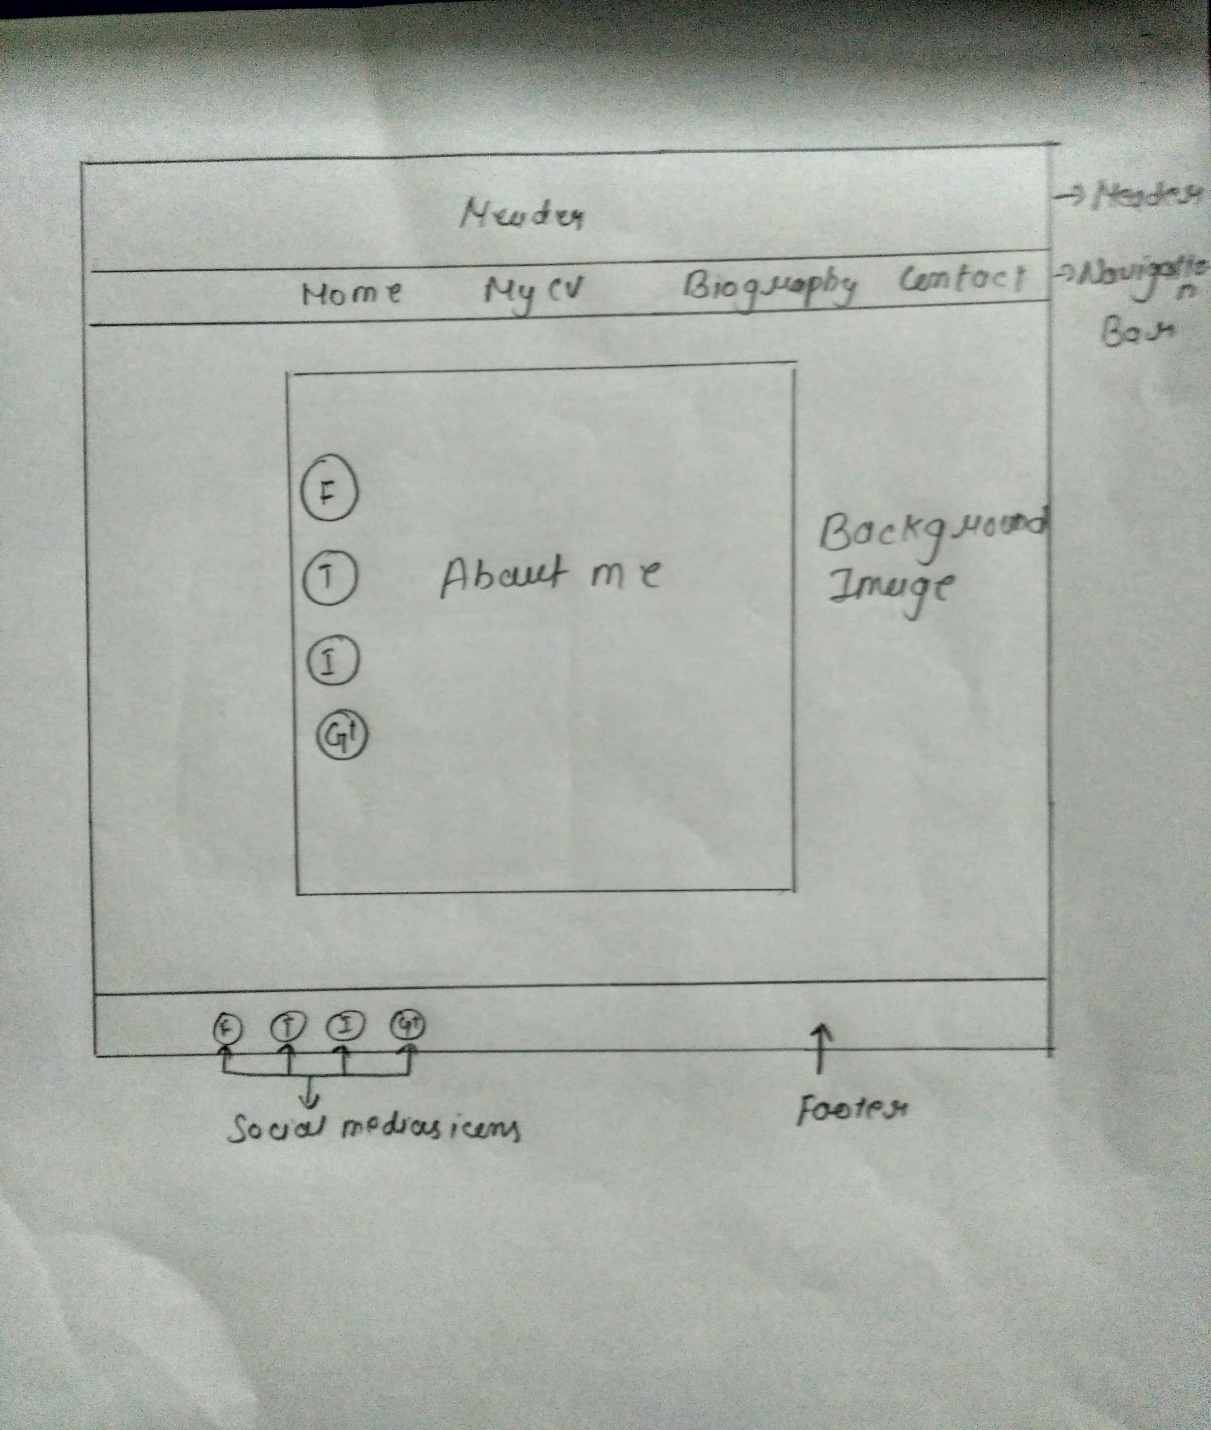 Header
→ Header
Home My CV Biography Contact
→ Navigatio
n
Bar
F
T
I
G+
About me
Background
Image
F T I G+
Social medias icons
Footer